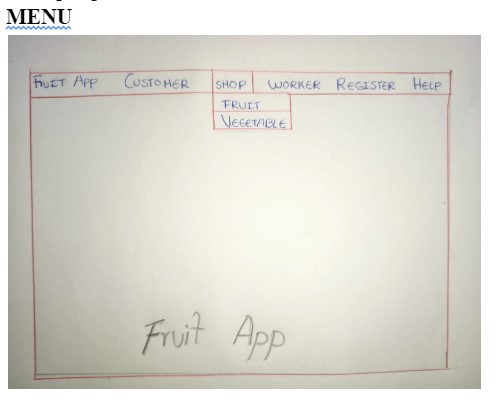 MENU
FRUIT APP CUSTOMER SHOP WORKER REGISTER HELP
FRUIT
VEGETABLE
Fruit App